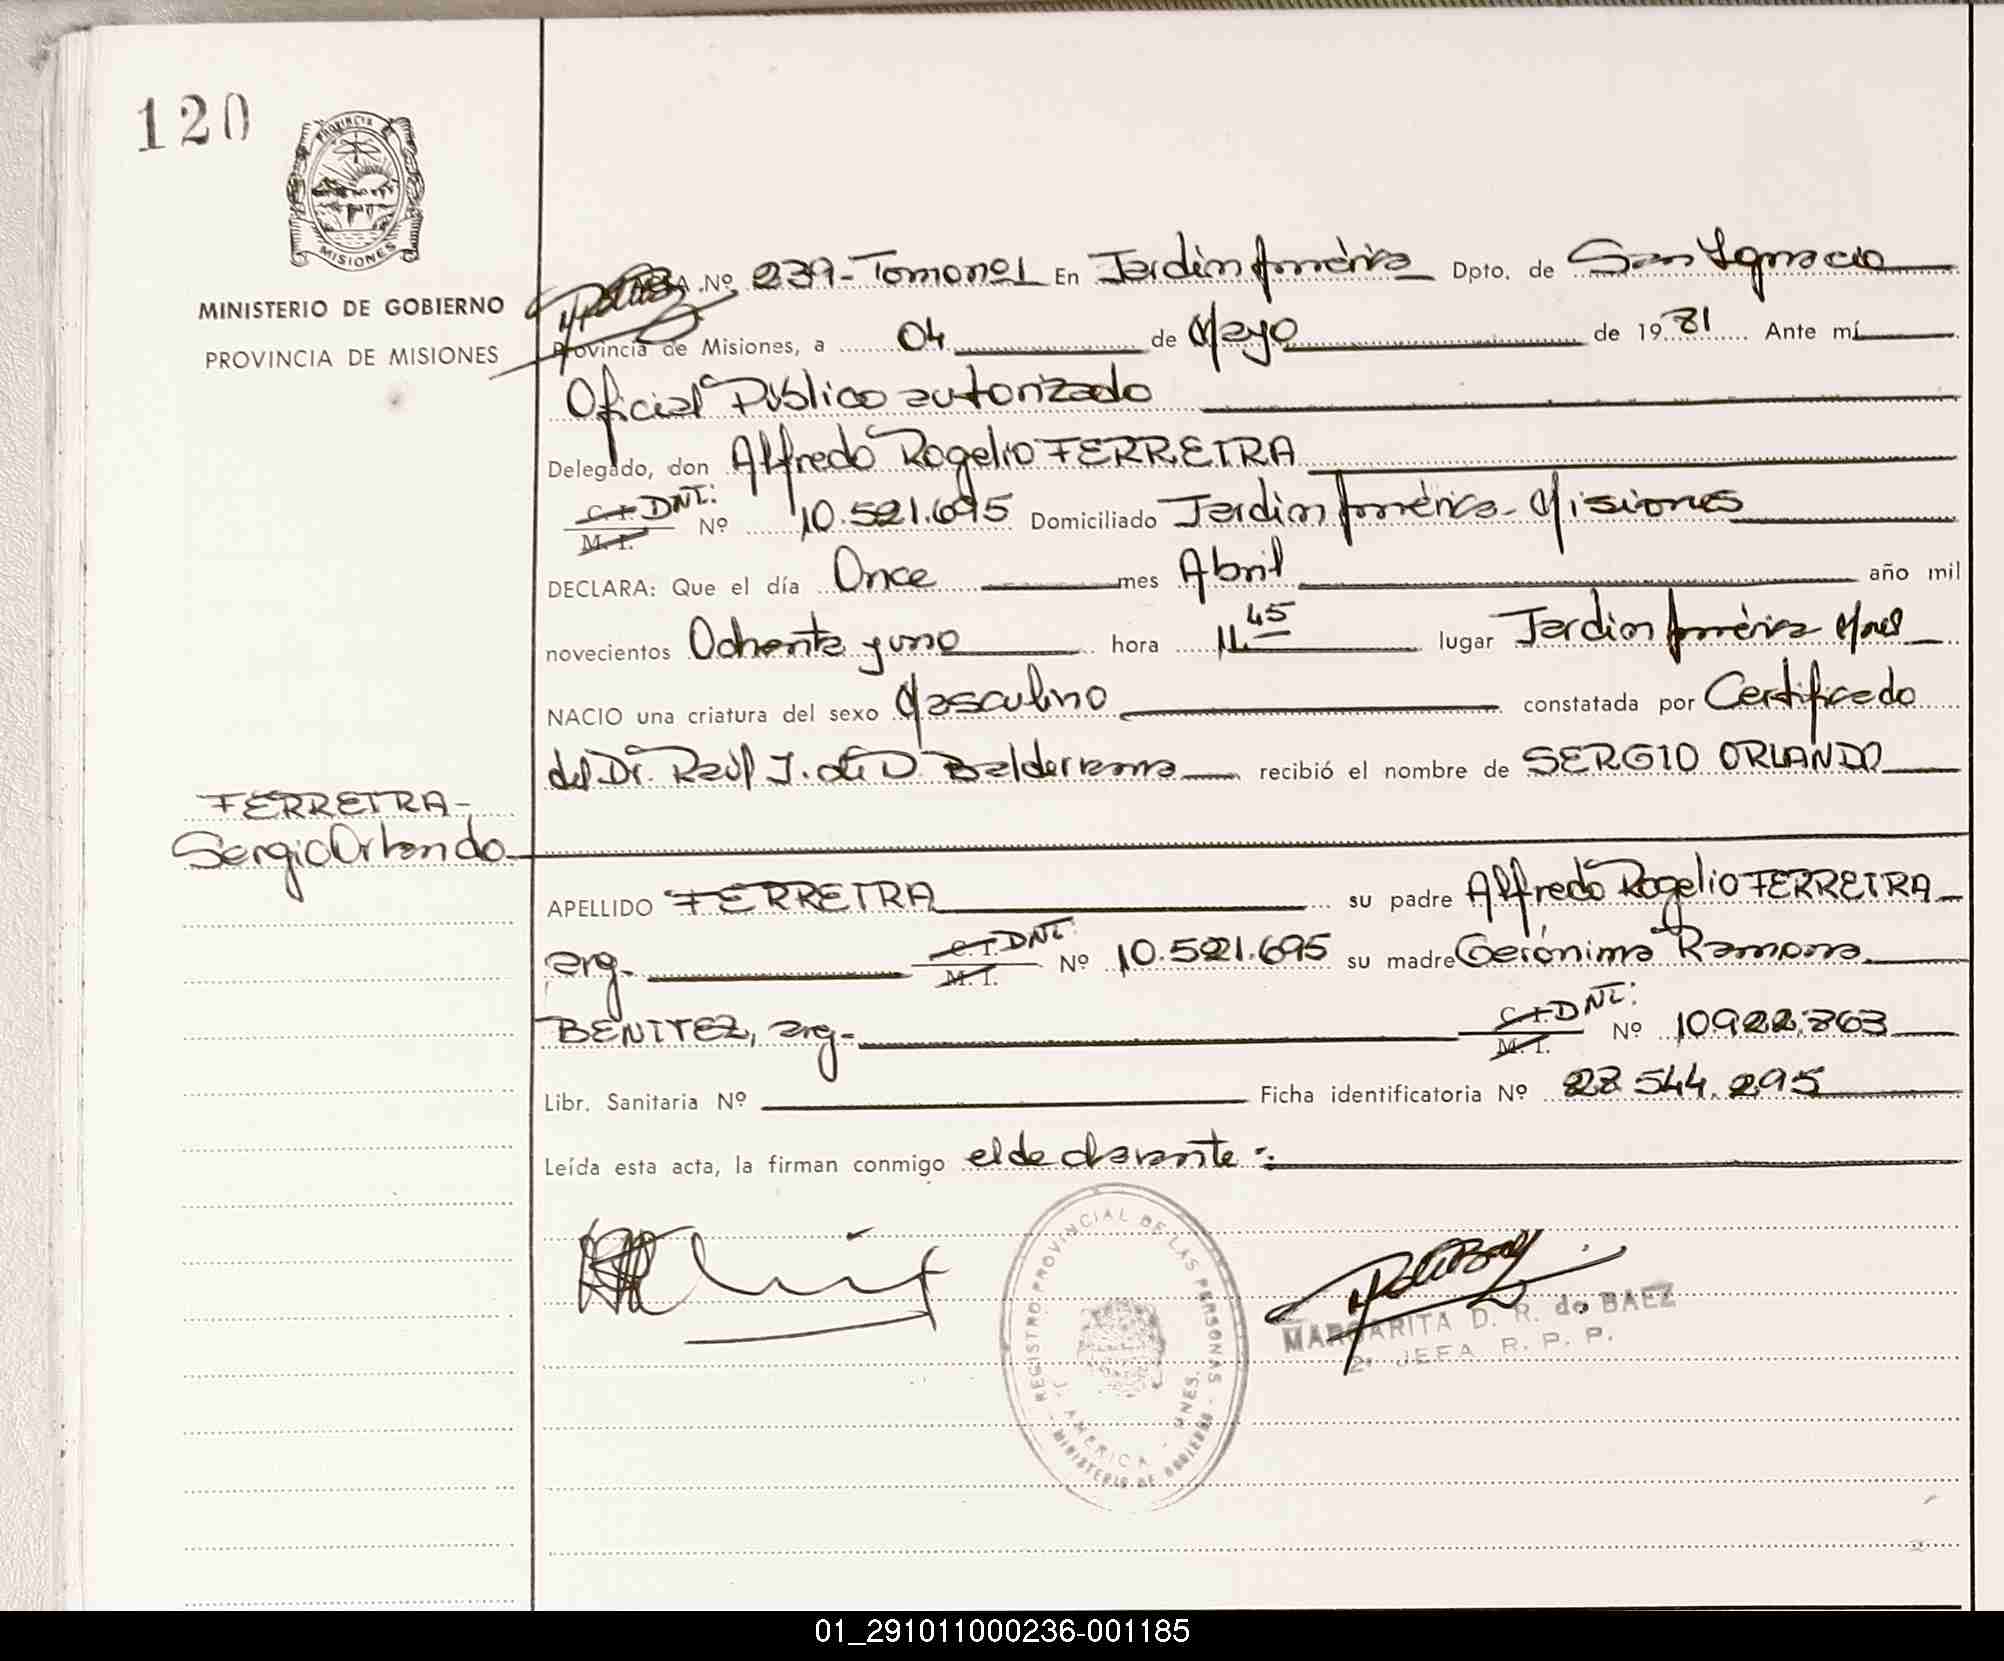 120
PROVINCIA
MISIONES
MINISTERIO DE GOBIERNO
PROVINCIA DE MISIONES
Nº 239-Tomo nº1 En Jardín América Dpto. de San Ignacio
Provincia de Misiones, a 04 de Mayo de 1981 Ante mí
Oficial Público autorizado
Delegado, don Alfredo Rogelio FERREIRA
C.I. DNI: M. I. Nº 10.521.695 Domiciliado Jardín América- Misiones
DECLARA: Que el día Once mes Abril año mil
novecientos Ochenta y uno hora 11.45 lugar Jardín América Mnes
NACIO una criatura del sexo Masculino constatada por Certificado
del Dr. Raúl J. de D. Balderrama recibió el nombre de SERGIO ORLANDO
FERREIRA-
Sergio Orlando
APELLIDO FERREIRA su padre Alfredo Rogelio FERREIRA
arg- C.I. DNI: M. I. Nº 10.521.695 su madre Gerónima Ramona
BENITEZ, arg- C.I. DNI: M. I. Nº
Libr. Sanitaria Nº Ficha identificatoria Nº 28.544.295
Leída esta acta, la firman conmigo el declarante-:
REGISTRO PROVINCIAL DE LAS PERSONAS
J. AMERICA - MNES.
MINISTERIO DE GOBIERNO
MARGARITA D. R. de BAEZ
2ª JEFA R. P. P.
01_291011000236-001185